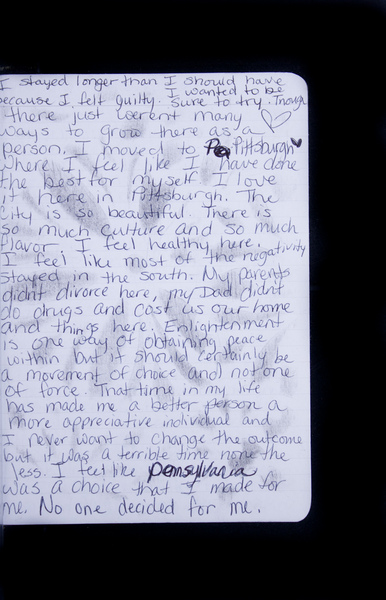 I stayed longer than I should have
I wanted to be
because I felt guilty. sure to try. Though
there just werent many
ways to grow there as a
person. I moved to Pittsburgh
where I feel like I have done
the best for myself. I love
it here in Pittsburgh. The
city is so beautiful. There is
so much culture and so much
flavor. I feel healthy here.
I feel like most of the negativity
stayed in the south. My parents
didnt divorce here, my Dad didnt
do drugs and cost us our home
and things here. Enlightenment
is one way of obtaining peace
within but it should certainly be
a movement of choice and not one
of force. That time in my life
has made me a better person a
more appreciative individual and
I never want to change the outcome
but it was a terrible time none the
less. I feel like pennsylvania
was a choice that I made for
me. No one decided for me.